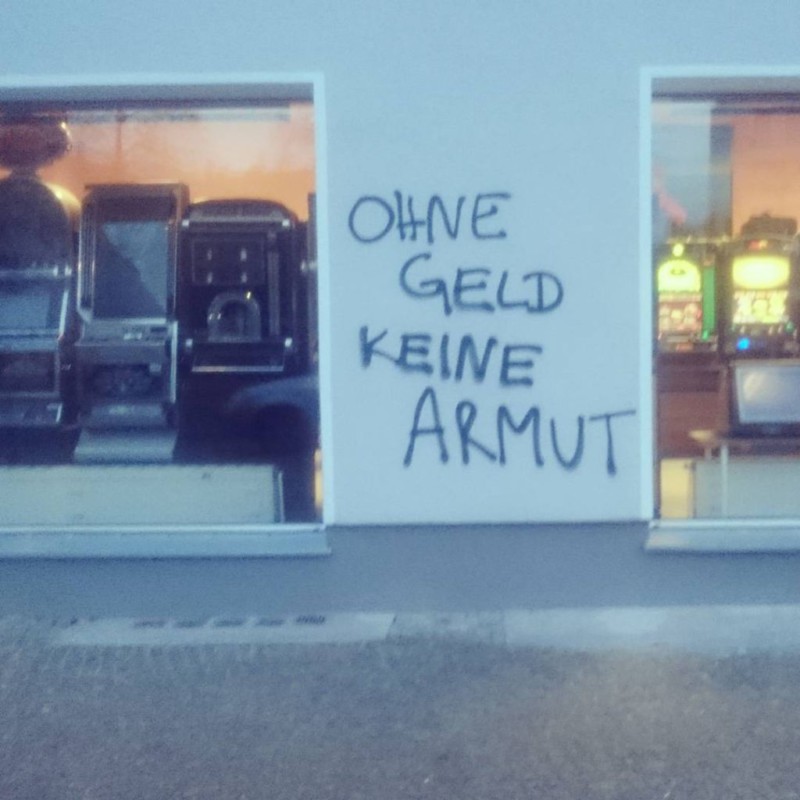 OHNE
GELD
KEINE
ARMUT